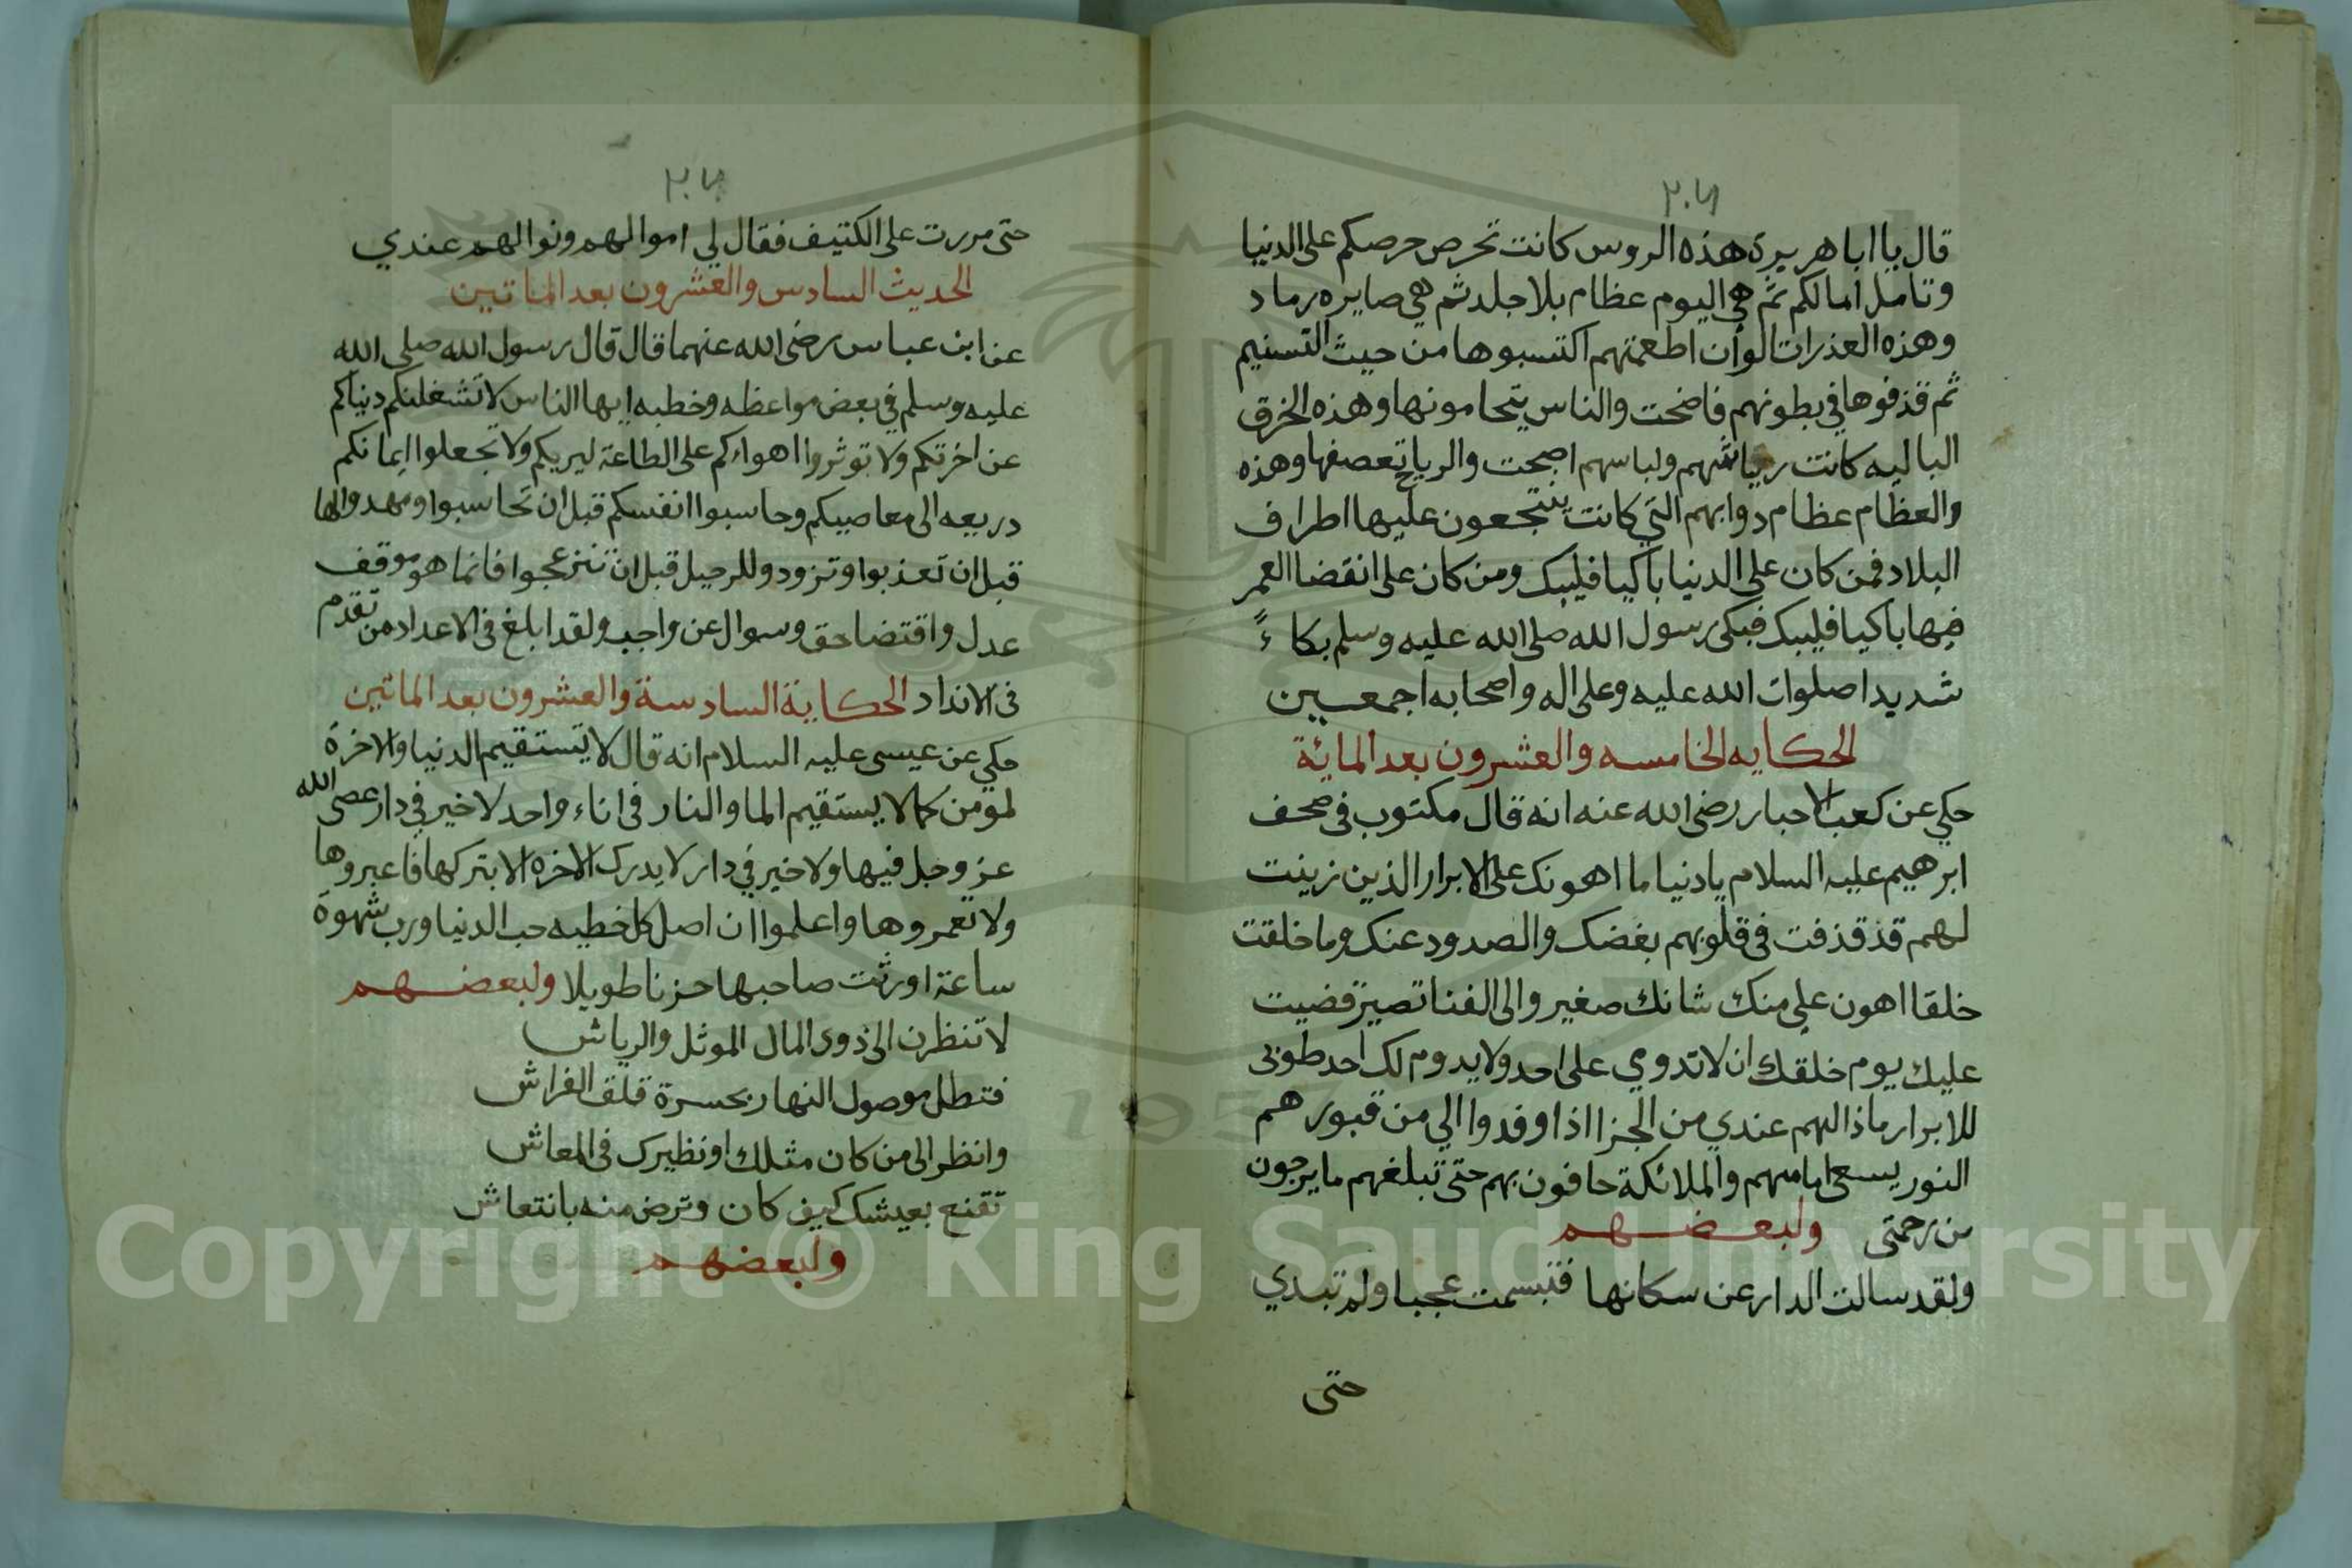 ٢٠٦
قال يا ابا هريرة هذه الروس كانت تحرص حرصكم على الدنيا
وتامل امالكم ثم هي اليوم عظام بلا جلد ثم هي صايره رماد
وهذه العذرات الوان اطعمتهم اكتسبوها من حيث التسنيم
ثم قذفوها في بطونهم فاضحت والناس يتحامونها وهذه الخرق
الباليه كانت رياشهم ولباسهم اصبحت والرياح تعصفها وهذه
والعظام عظام دوابهم التي كانت ينتجعون عليها اطراف
البلاد فمن كان على الدنيا باكيا فليبك ومن كان على انقضا العمر
فيها باكيا فليبك فبكى رسول الله صلى الله عليه وسلم بكاءً
شديدا صلوات الله عليه وعلى اله واصحابه اجمعين
الحكايه الخامسه والعشرون بعد المائة
حكي عن كعب الاحبار رضى الله عنه انه قال مكتوب فى صحف
ابرهيم عليه السلام يا دنيا ما اهونك على الابرار الذين زينت
لهم قد قذفت فى قلوبهم بغضك والصدود عنك وما خلقت
خلقا اهون علي منك شانك صغير والى الفنا تصير قضيت
عليك يوم خلقتك ان لا تدومي على احد ولا يدوم لك احد طوبى
للابرار ماذا لهم عندي من الجزا اذا وفدوا الي من قبورهم
النور يسعى امامهم والملائكة حافون بهم حتى تبلغهم ما يرجون
من رحمتى ولبعضهم
ولقد سالت الدار عن سكانها فتبسمت عجبا ولم تبدي
حتى
٢٠٧
حتى مررت على الكتيف فقال لي اموالهم ونوالهم عندي
الحديث السادس والعشرون بعد الماتين
عن ابن عباس رضى الله عنهما قال قال رسول الله صلى الله
عليه وسلم في بعض مواعظه وخطبه ايها الناس لا تشغلنكم دنياكم
عن اخرتكم ولا توثروا اهواءكم على الطاعة لربكم ولا تجعلوا ايمانكم
دريعه الى معاصيكم وحاسبوا انفسكم قبل ان تحاسبوا ومهدوا لها
قبل ان تعذبوا وتزودو للرحيل قبل ان تنزعجوا فانما هو موقف
عدل واقتضا حق وسوال عن واجب ولقد ابلغ فى الاعداد من تقدم
فى الانداد الحكاية السادسة والعشرون بعد الماتين
حكي عن عيسى عليه السلام انه قال لا يستقيم الدنيا والاخرة
لمومن كما لا يستقيم الما والنار فى اناء واحد لا خير في دار عصى الله
عز وجل فيها ولا خير في دار لا يدرك الاخره الا بتركها فاعبروها
ولا تعمروها واعلموا ان اصل كل خطيه حب الدنيا ورب شهوة
ساعة اورثت صاحبها حزنا طويلا ولبعضهم
لا تنظرن الى ذوى المال الموثل والرياش
فتظل موصول النهار بحسرة قلق الفراش
وانظر الى من كان مثلك او نظيرك فى المعاش
تقنع بعيشك كيف كان وترض منه بانتعاش
ولبعضهم
Copyright © King Saud University
195